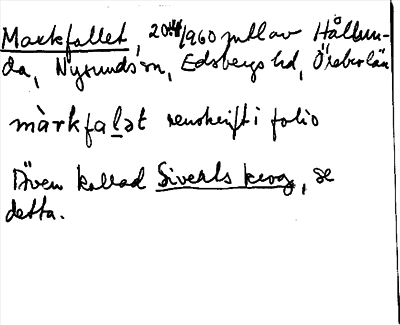 Markfallet, 20/4 1960 meddelat av Hållun-
da, Nysunds sn, Edsbergs hd, Örebro län
màrkfalət renskrift i folio
Även kallad Siverts krog, se
detta.